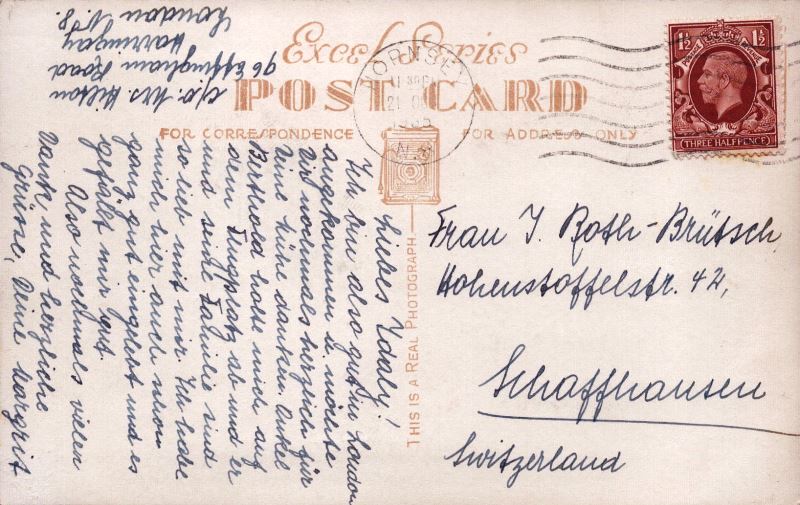 Excel Series
POST CARD
FOR CORRESPONDENCE
FOR ADDRESS ONLY
THIS IS A REAL PHOTOGRAPH
HORNSEY
1935
N. 8
1½ 1½
POSTAGE REVENUE
THREE HALFPENCE
c/o. Mrs Hilton
96 Effingham Road
Harringay
London N. 8
Liebes Idaly!
Ich bin also gut in London
angekommen u. möchte
dir nochmals herzlich für
deine danken. Onkel
Berthold holte mich auf
dem Flugplatz ab und er
und seine Familie sind
so lieb mit mir. Ich habe
mich hier auch schon
ganz gut eingelebt und es
gefällt mir gut.
Also nochmals vielen
Dank und herzliche
Grüsse, Deine Margrit
Frau J. Roth-Brütsch,
Hohenstoffelstr. 42,
Schaffhausen
Switzerland